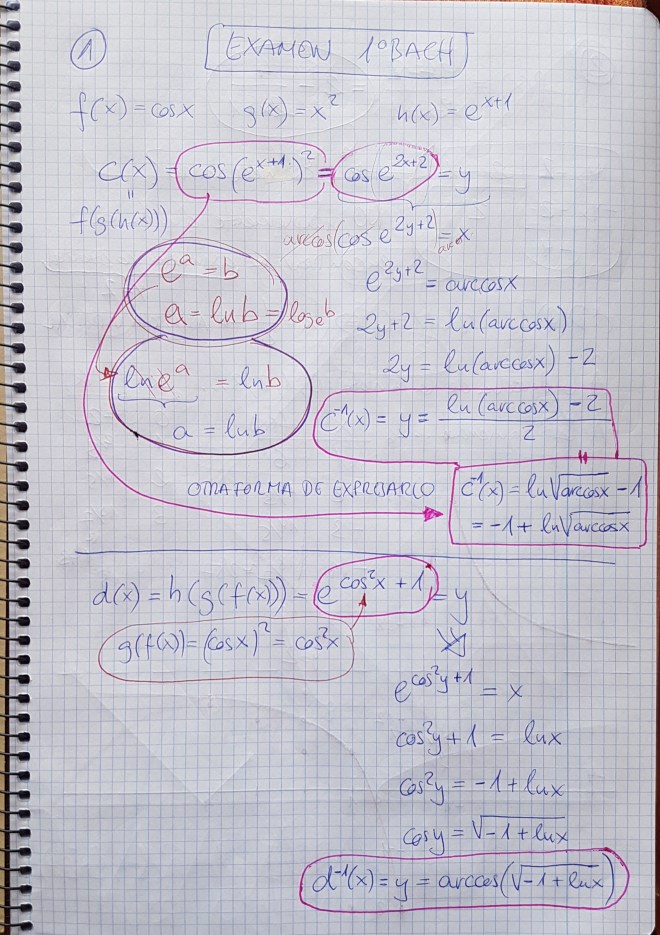 ① EXAMEN 1º BACH
f(x) = cosx g(x) = x² h(x) = e^(x+1)
C(x) = cos(e^(x+1))² = cos(e^(2x+2)) = y
f(g(h(x)))
arccos(cos e^(2y+2)) = arccos x
e^a = b
e^(2y+2) = arccosx
a = lnb = log_e b
2y+2 = ln(arccosx)
ln e^a = lnb
2y = ln(arccosx) - 2
a = lnb
C⁻¹(x) = y = (ln(arccosx) - 2)/2
OTRA FORMA DE EXPRESARLO
C⁻¹(x) = ln√arccosx - 1
= -1 + ln√arccosx
d(x) = h(g(f(x))) = e^(cos²x + 1) = y
g(f(x)) = (cosx)² = cos²x
e^(cos²y+1) = x
cos²y + 1 = lnx
cos²y = -1 + lnx
cosy = √(-1 + lnx)
d⁻¹(x) = y = arccos(√(-1 + lnx))